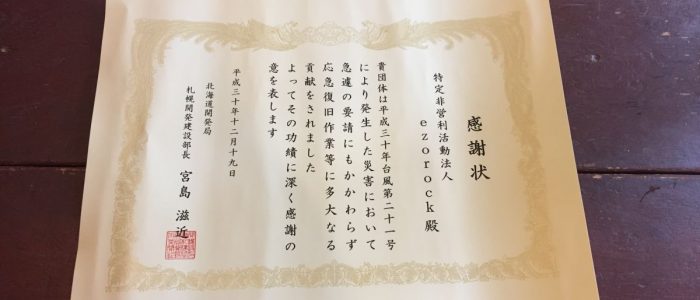 感謝状
特定非営利活動法人
ezorock殿
貴団体は平成三十年台風第二十一号
により発生した災害において
急遽の要請にもかかわらず
応急復旧作業等に多大なる
貢献をされました
よってその功績に深く感謝の
意を表します
平成三十年十二月十九日
北海道開発局
札幌開発建設部長 宮島 滋近